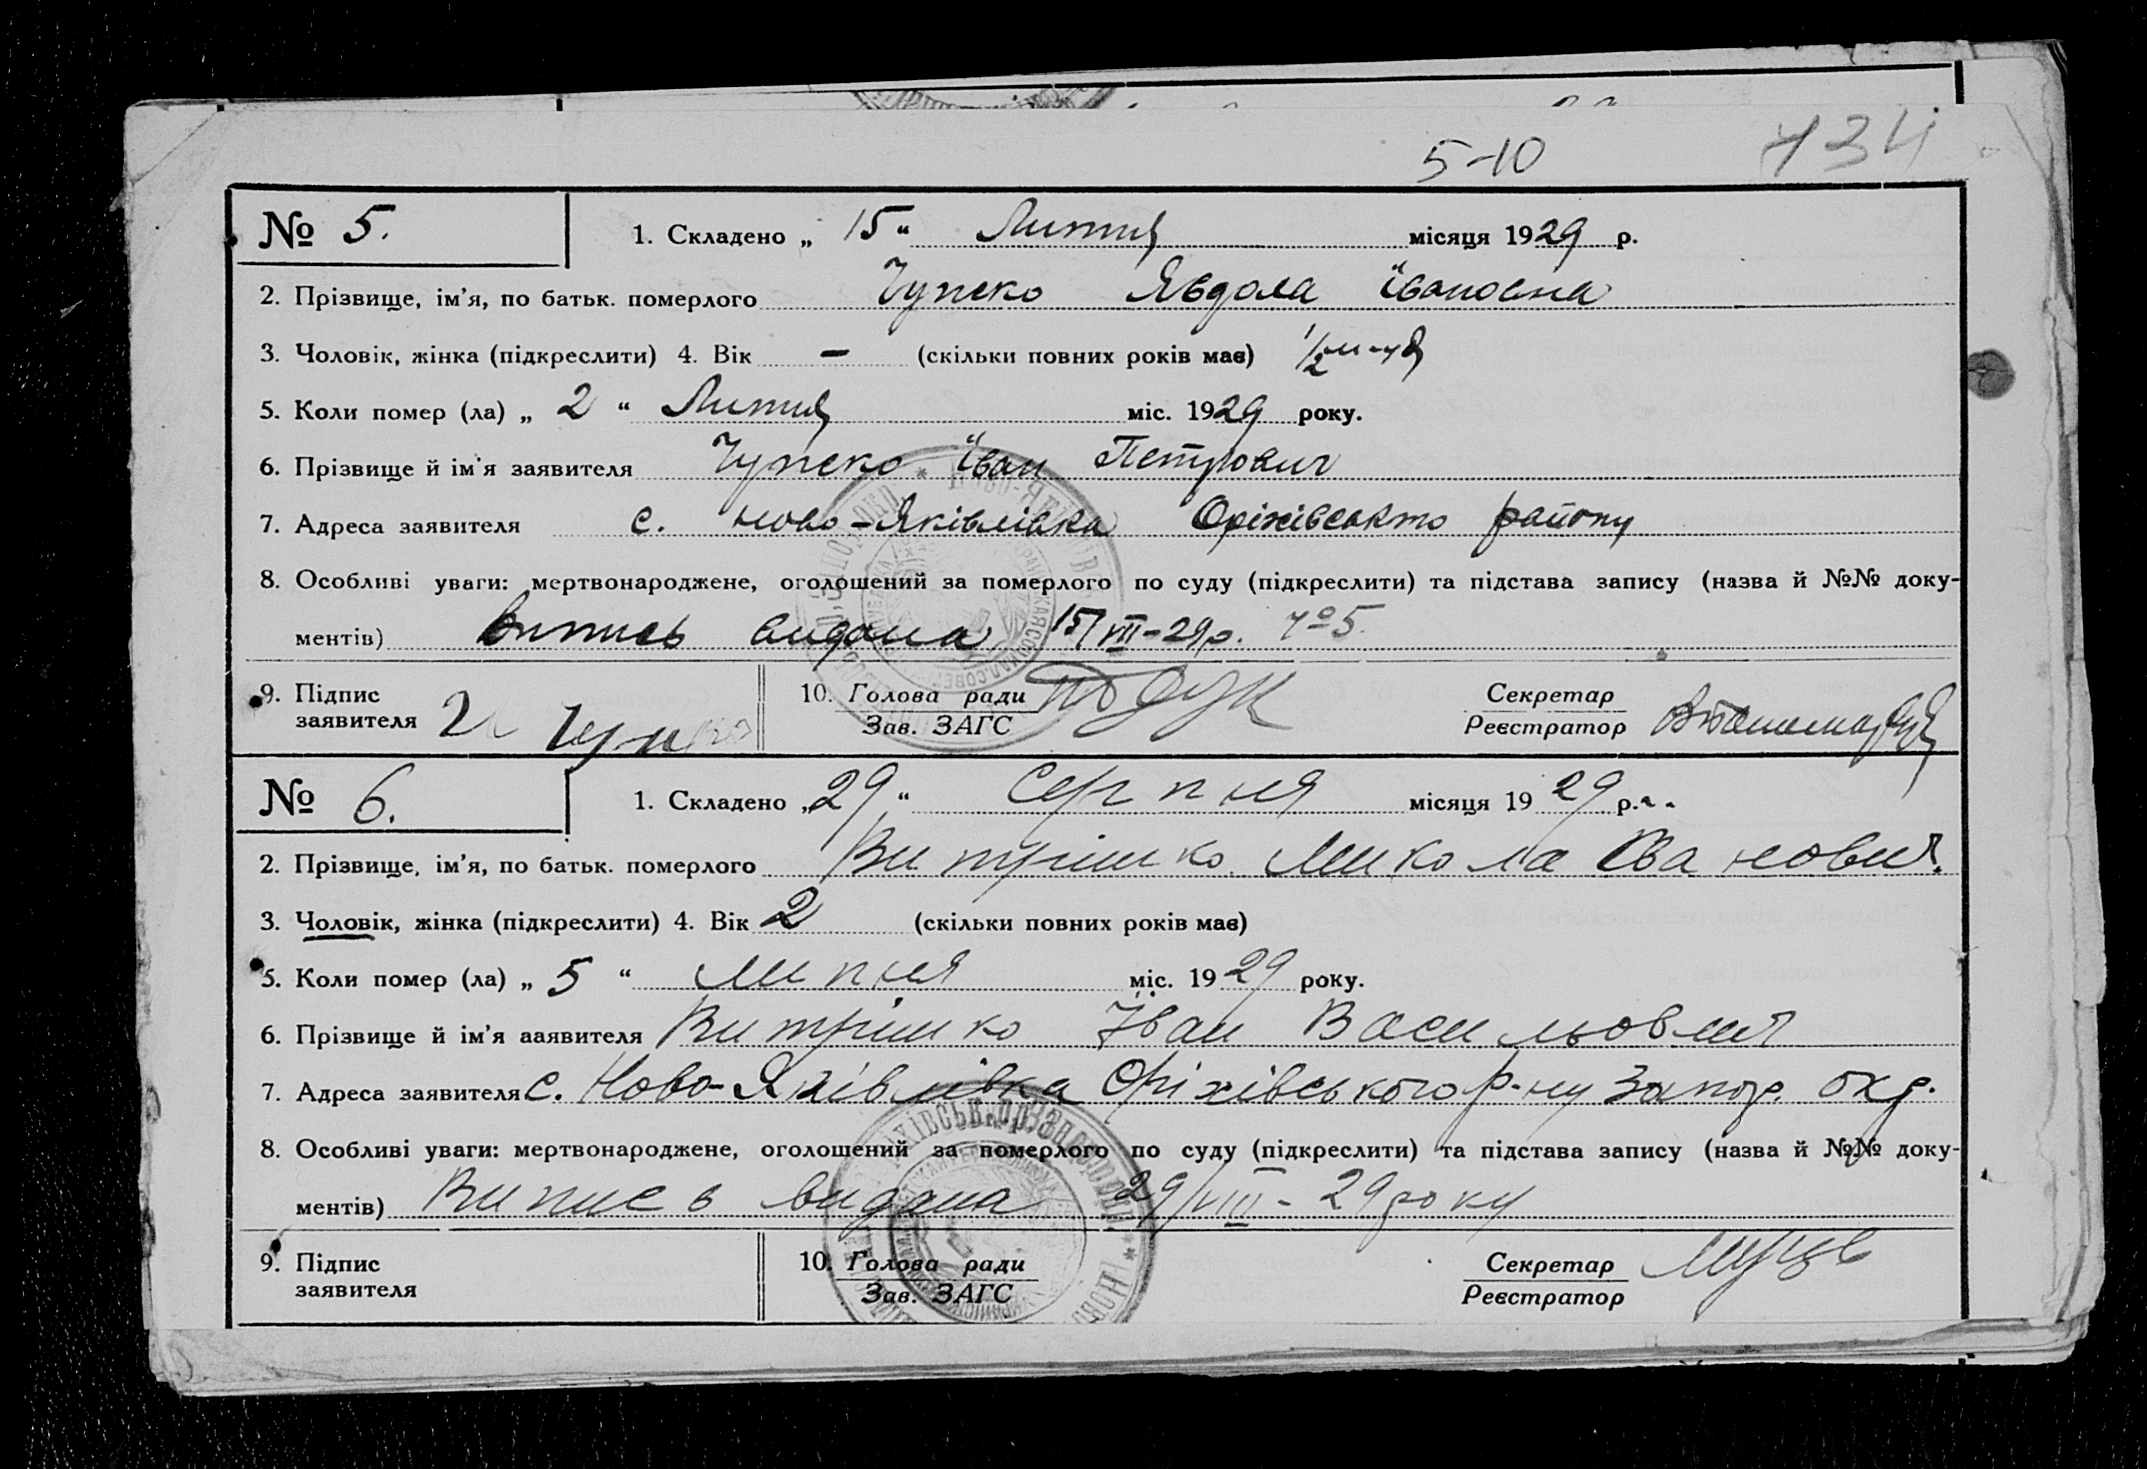 5-10 434
№ 5. 1. Складено „ 15 “ Лютня місяця 1929 р.
2. Прізвище, ім’я, по батьк. померлого Чупеко Явдоха Івановна
3. Чоловік, жінка (підкреслити) 4. Вік – (скільки повних років має) 1/2
5. Коли помер (ла) „ 2 “ Лютня міс. 1929 року.
6. Прізвище й ім’я заявителя Чупеко Іван Петрович
7. Адреса заявителя с. Ново-Яківлівка Оріхівського району
8. Особливі уваги: мертвонароджене, оголошений за померлого по суду (підкреслити) та підстава запису (назва й №№ доку-
ментів) Випись видана 15/VII-29р. №5.
9. Підпис заявителя
10. Голова ради
Зав. ЗАГС
Секретар
Реєстратор
№ 6. 1. Складено „29“ Серпня місяця 1929 р.
2. Прізвище, ім’я, по батьк. померлого Витрішко Микола Іванович.
3. Чоловік, жінка (підкреслити) 4. Вік 2 (скільки повних років має)
5. Коли помер (ла) „ 5 “ липня міс. 1929 року.
6. Прізвище й ім’я ааявителя Витрішко Іван Васильович
7. Адреса заявителя с. Ново-Яківлівка Оріхівського р-ну Запор. окр.
8. Особливі уваги: мертвонароджене, оголошений за померлого по суду (підкреслити) та підстава запису (назва й №№ доку-
ментів) Випись видана 29/VIII-29 року
9. Підпис заявителя
10. Голова ради
Зав. ЗАГС
Секретар
Реєстратор